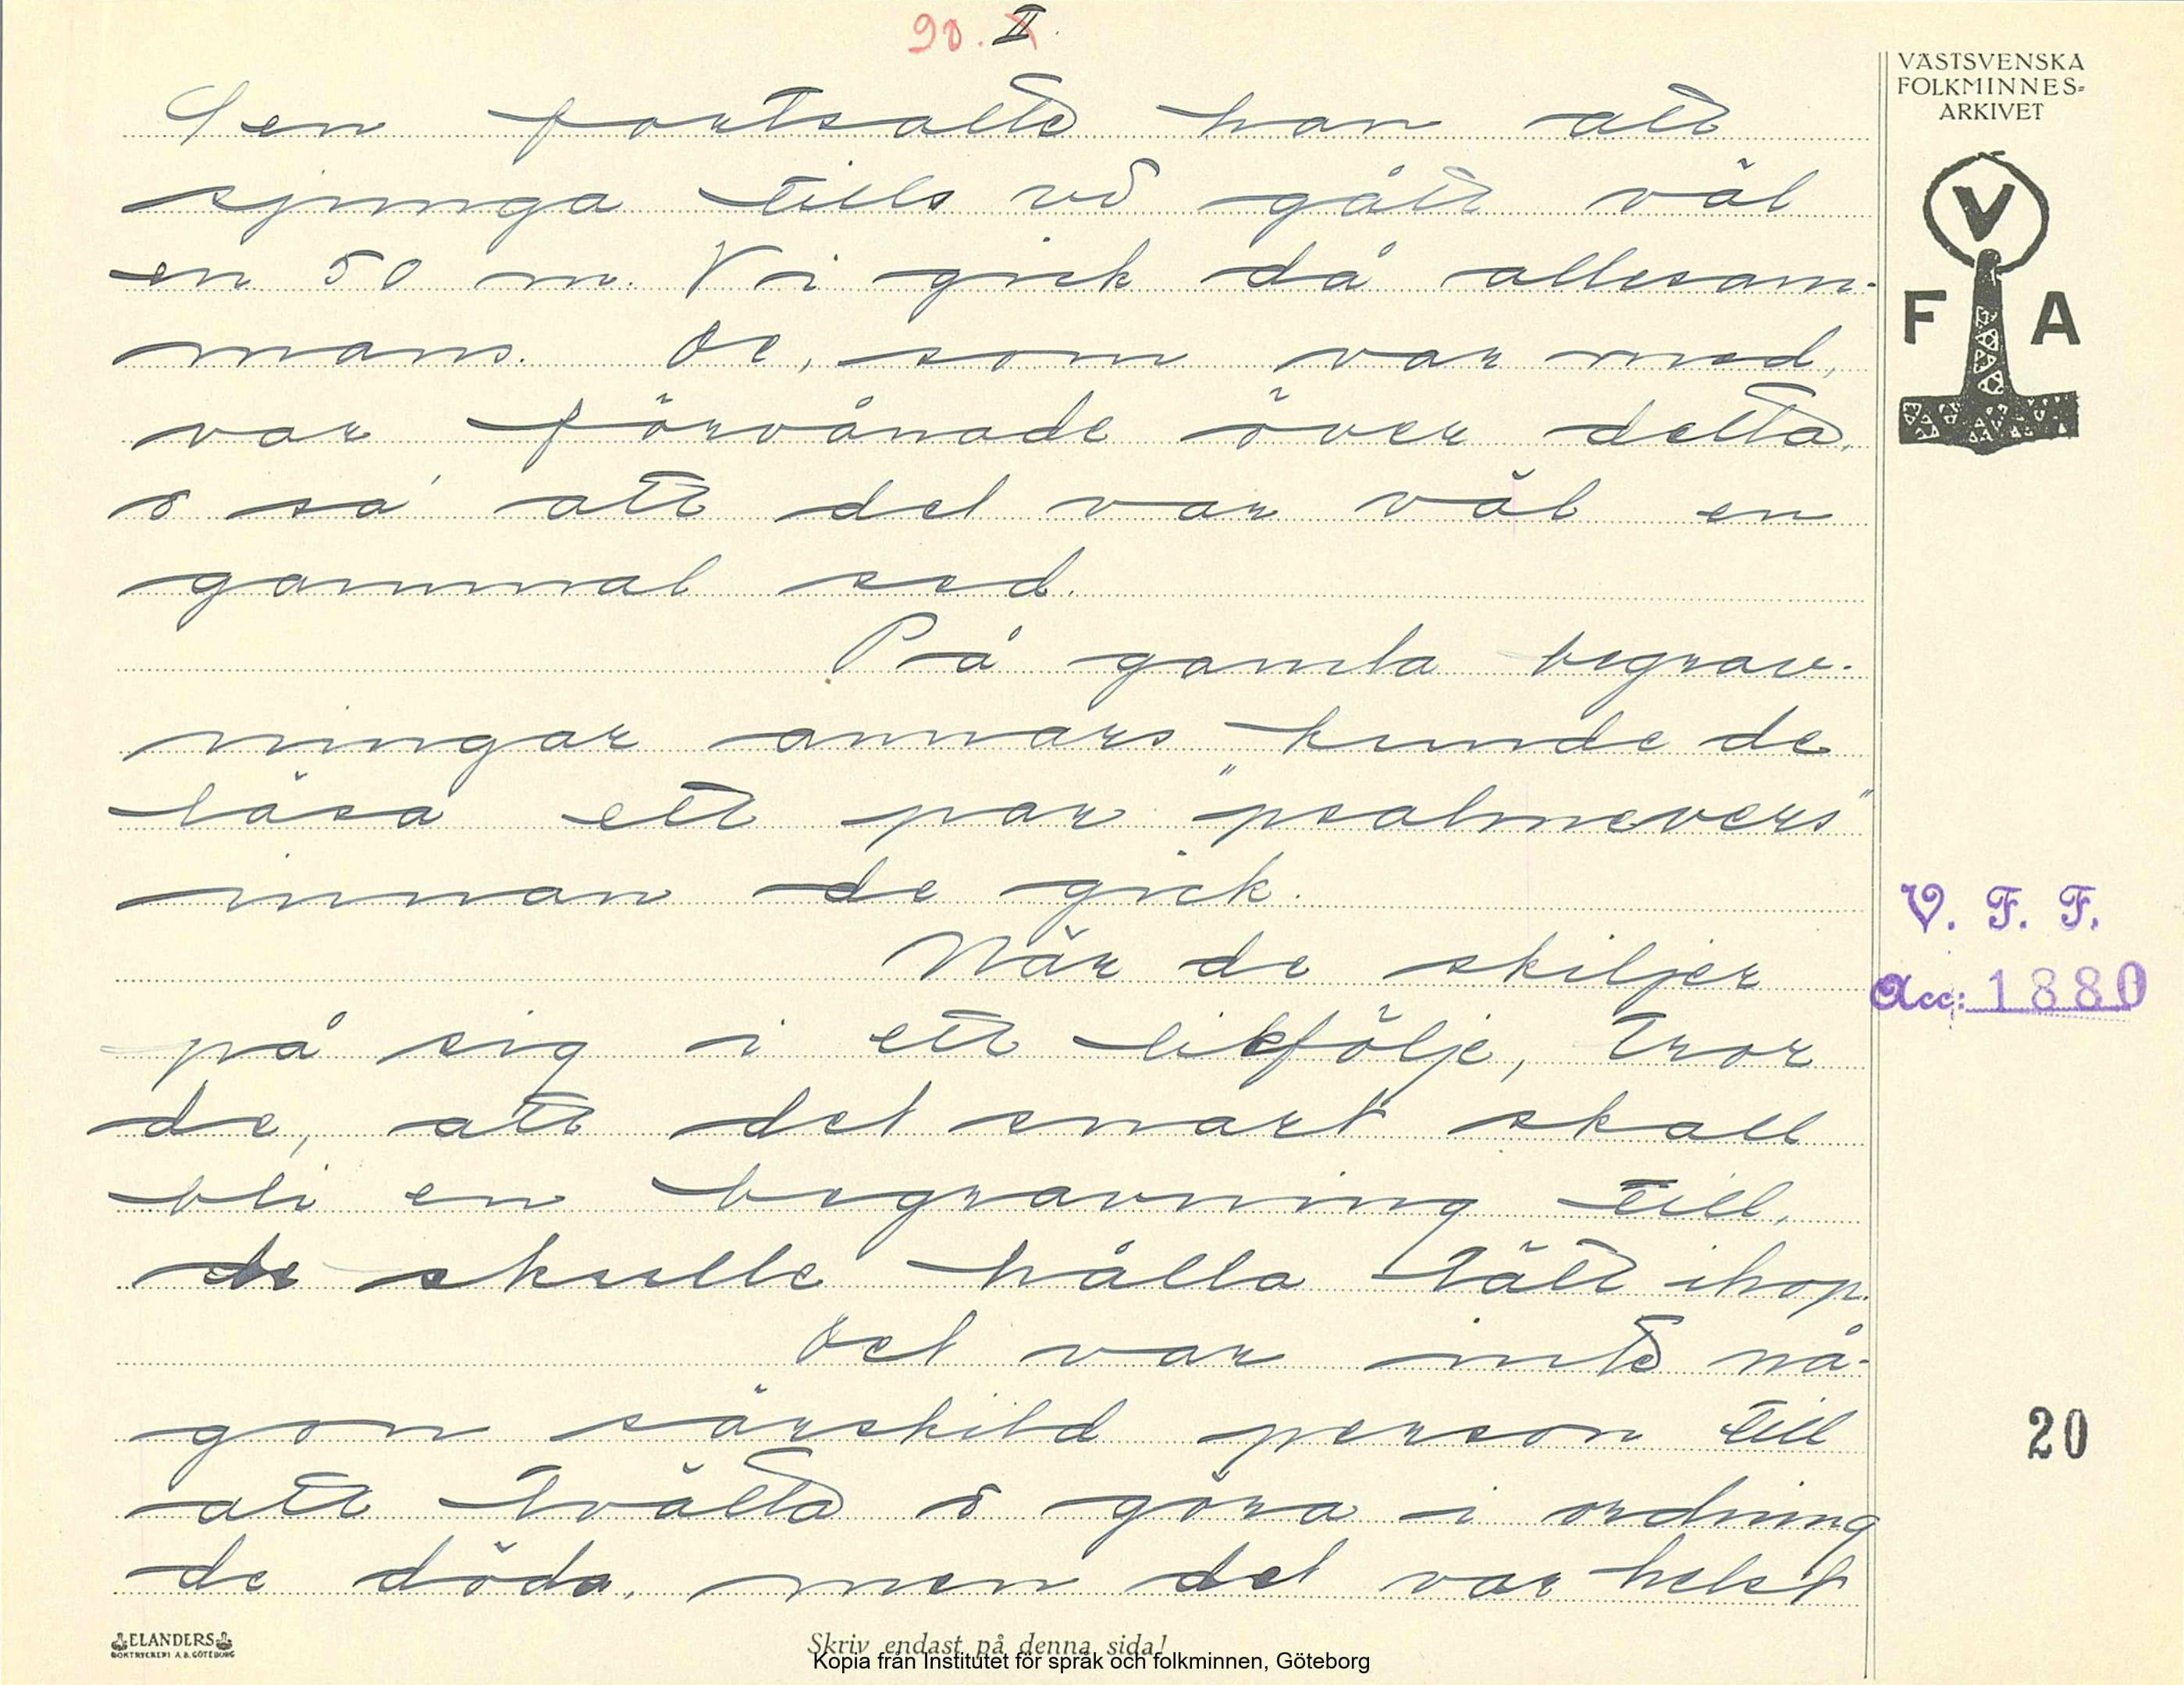 90. II.
VÄSTSVENSKA
FOLKMINNES-
ARKIVET
V
F A
Sen fortsatte han att
sjunga tills vi gått väl
en 50 m. Vi gick då allesam-
mans. De, som var med,
var förvånade över detta,
o sa' att det var väl en
gammal sed.
På gamla begrav-
ningar annars kunde de
läsa ett par "psalmevers"
innan de gick.
När de skiljer
på sig i ett likfölje, tror
de, att det snart skall
bli en begravning till,
de skulle hålla tätt ihop.
Det var inte nå-
gon särskild person till
att tvätta o göra i ordning
de döda, men det var helst
V. F. F.
Acc: 1880
20
ELANDERS
BOKTRYCKERI A.B. GÖTEBORG
Skriv endast på denna sida!
Kopia från Institutet för språk och folkminnen, Göteborg